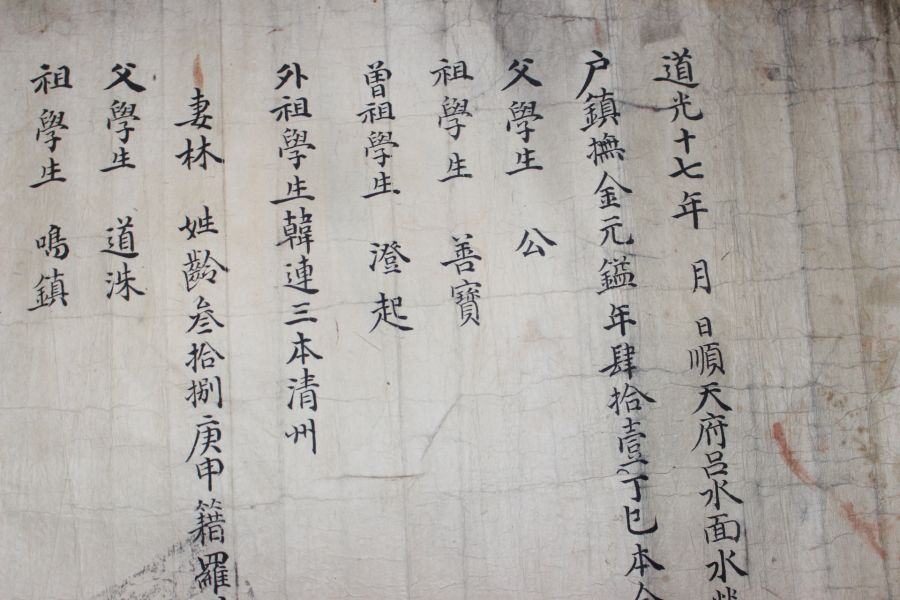 道光十七年 月 日順天府呂水面水
户鎮撫金元鎰年肆拾壹丁巳本金
父學生 公
祖學生 善寶
曾祖學生 澄起
外祖學生韓連三本清州
妻林 姓齡叁拾捌庚申籍羅
父學生 道洙
祖學生 鳴鎮